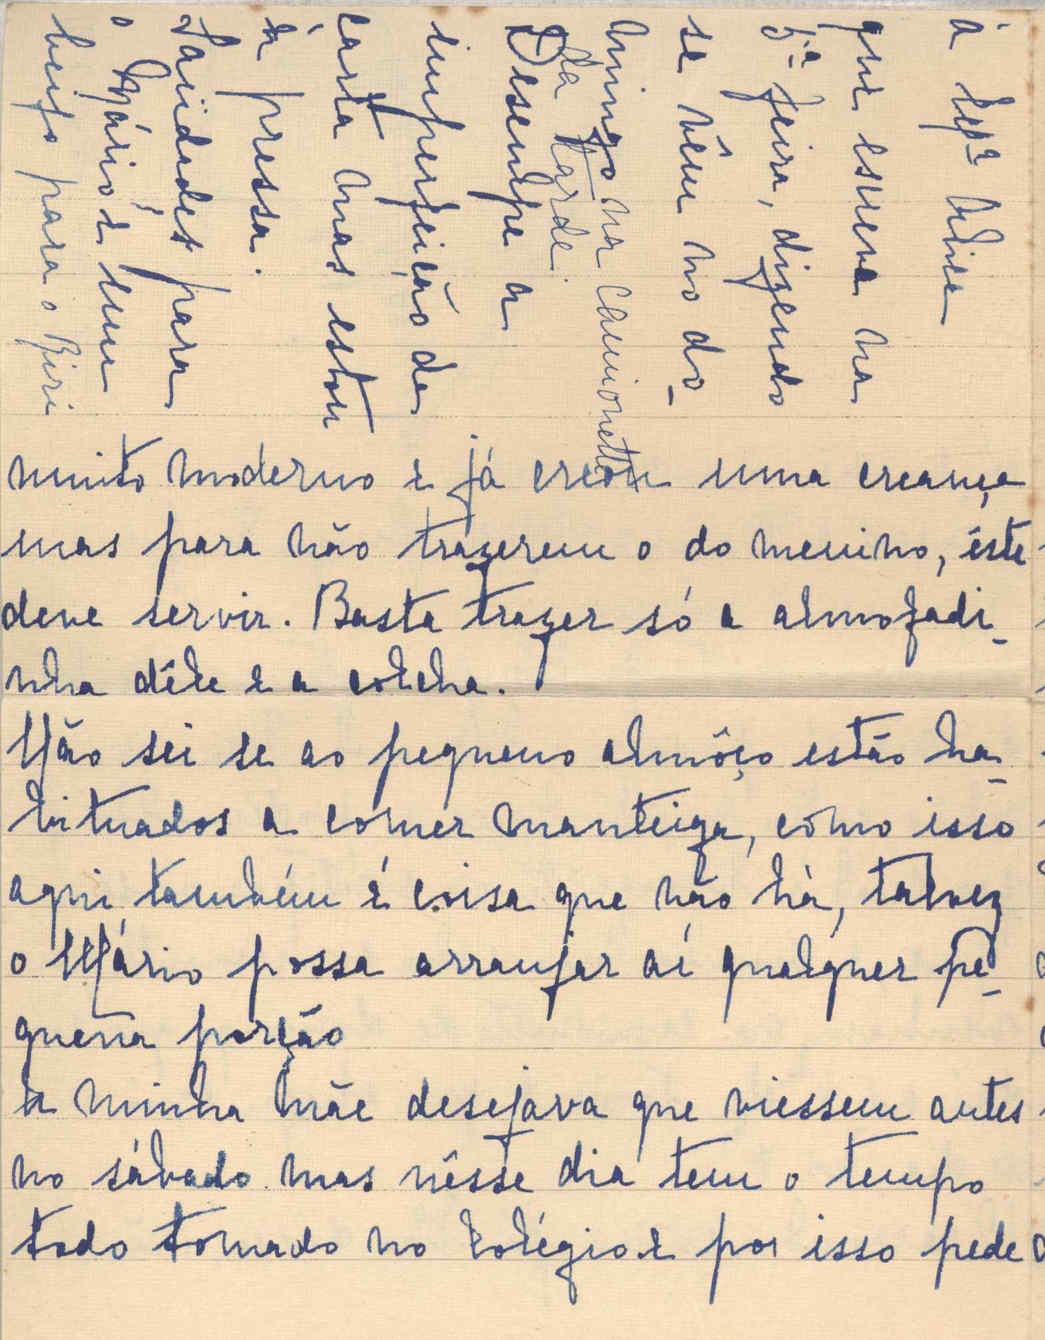 muito moderno e já creou uma creança
mas para não trazerem o do menino, êste
deve servir. Basta trazer só a almofadi-
nha dêle e a colcha.
Não sei se ao pequeno almôço estão ha-
bituados a comer manteiga, como isso
aqui também é coisa que não há, talvez
o Mário possa arranjar aí qualquer pe-
quena porção
A minha Mãe desejava que viessem antes
no sábado mas nêsse dia tem o tempo
todo tomado no Colégio e por isso pede
á Exp.ª
que escreva na
5ª feira, dizendo
se vêm no do-
mingo na camionette
da tarde.
Desculpe a
imperfeição da
carta mas estou
á pressa.
Saüdades para
o Mário e um
beijo para o